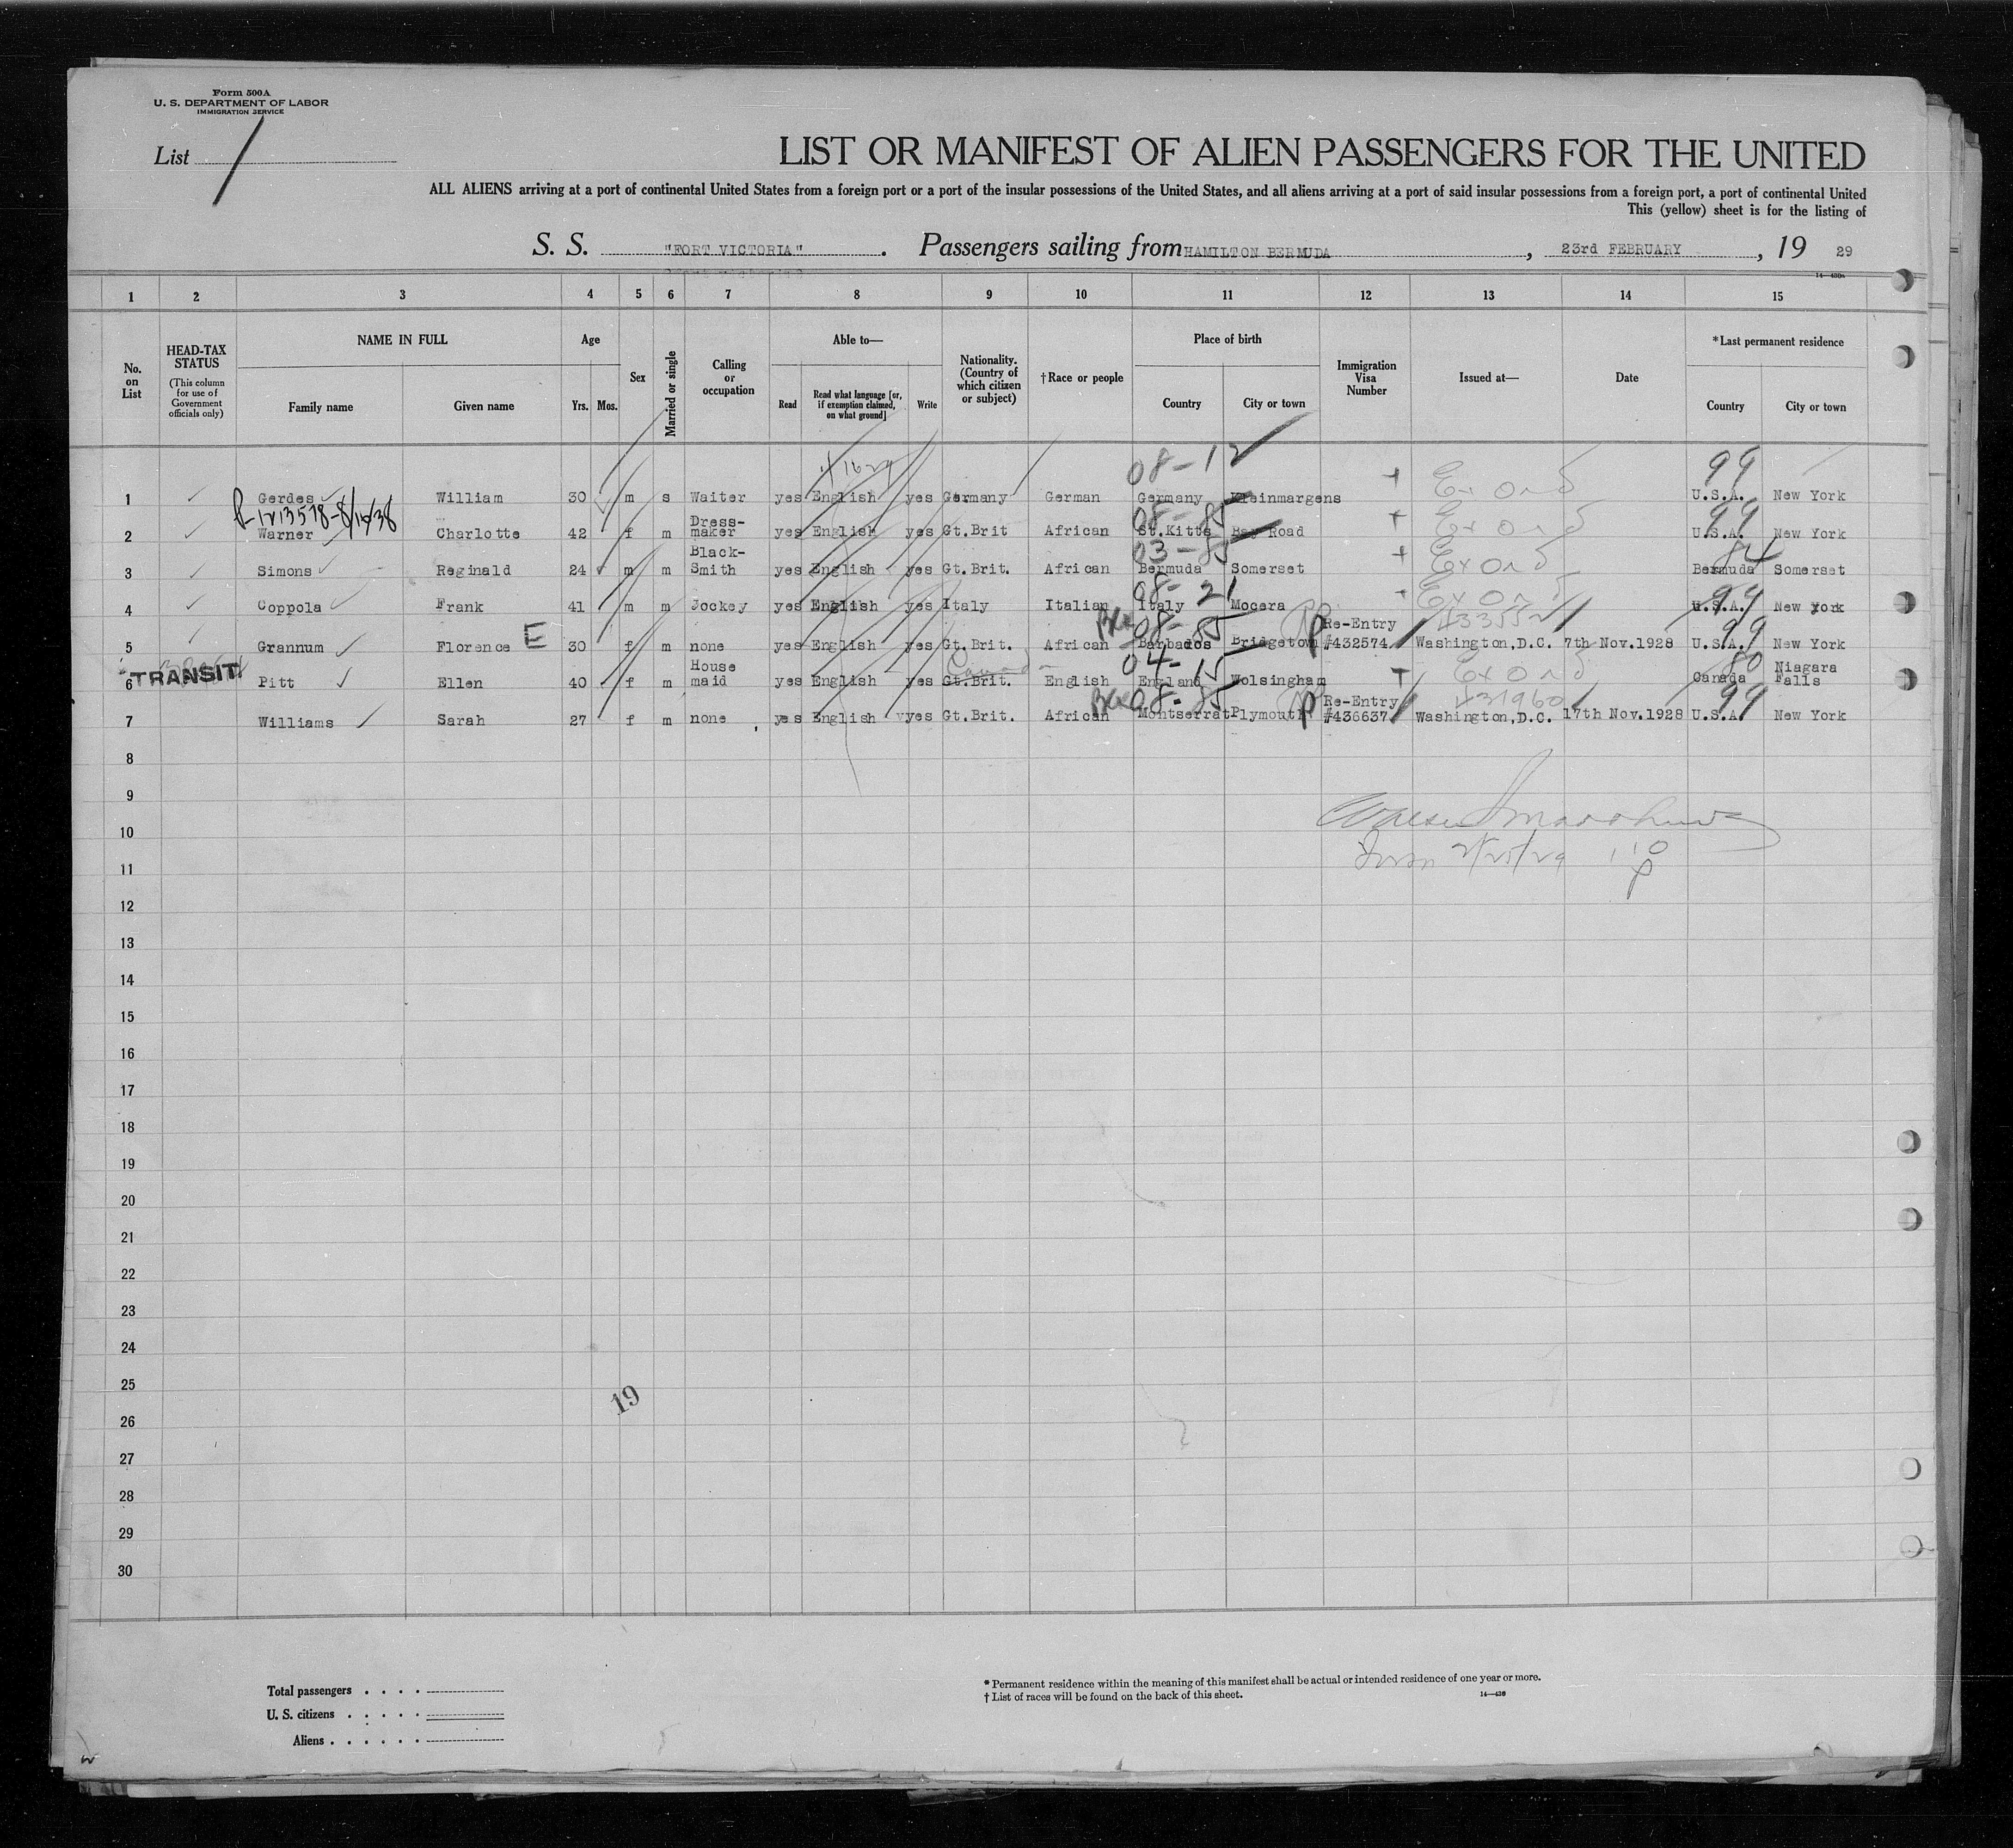 Form 500A
U. S. DEPARTMENT OF LABOR
IMMIGRATION SERVICE
List 1
LIST OR MANIFEST OF ALIEN PASSENGERS FOR THE UNITED
ALL ALIENS arriving at a port of continental United States from a foreign port or a port of the insular possessions of the United States, and all aliens arriving at a port of said insular possessions from a foreign port, a port of continental United
This (yellow) sheet is for the listing of
S. S. "FORT VICTORIA". Passengers sailing from HAMILTON BERMUDA, 23rd FEBRUARY, 19 29
1 2 3 4 5 6 7 8 9 10 11 12 13 14 15
No. on List
HEAD-TAX STATUS
(This column for use of Government officials only)
NAME IN FULL
Family name Given name
Age
Yrs. Mos.
Sex
Married or single
Calling or occupation
Able to—
Read
Read what language [or, if exemption claimed, on what ground]
Write
Nationality. (Country of which citizen or subject)
†Race or people
Place of birth
Country City or town
Immigration Visa Number
Issued at—
Date
*Last permanent residence
Country City or town
08-12 99
1 Gerdes William 30 m s Waiter yes English yes Germany German Germany Kleinmargens U.S.A. New York
08-85 99
2 Warner Charlotte 42 f m Dress-maker yes English yes Gt.Brit African St.Kitts Bay Road U.S.A. New York
03-85 84
3 Simons Reginald 24 m m Black-Smith yes English yes Gt.Brit. African Bermuda Somerset Bermuda Somerset
08-21 99
4 Coppola Frank 41 m m Jockey yes English yes Italy Italian Italy Mocera U.S.A. New York
08-85 99
5 Grannum Florence E 30 f m none yes English yes Gt.Brit. African Barbados Bridgetown Re-Entry #432574 Washington,D.C. 7th Nov.1928 U.S.A. New York
04-15 80
TRANSIT
6 Pitt Ellen 40 f m House maid yes English yes Gt.Brit. English England Wolsingham Canada Niagara Falls
08-85 99
7 Williams Sarah 27 f m none yes English yes Gt.Brit. African Montserrat Plymouth Re-Entry #436637 Washington,D.C. 17th Nov.1928 U.S.A. New York
8
9
10
11
12
13
14
15
16
17
18
19
20
21
22
23
24
25
19
26
27
28
29
30
Total passengers . . . .
U. S. citizens . . . . .
Aliens . . . . . .
* Permanent residence within the meaning of this manifest shall be actual or intended residence of one year or more.
† List of races will be found on the back of this sheet.
14—430